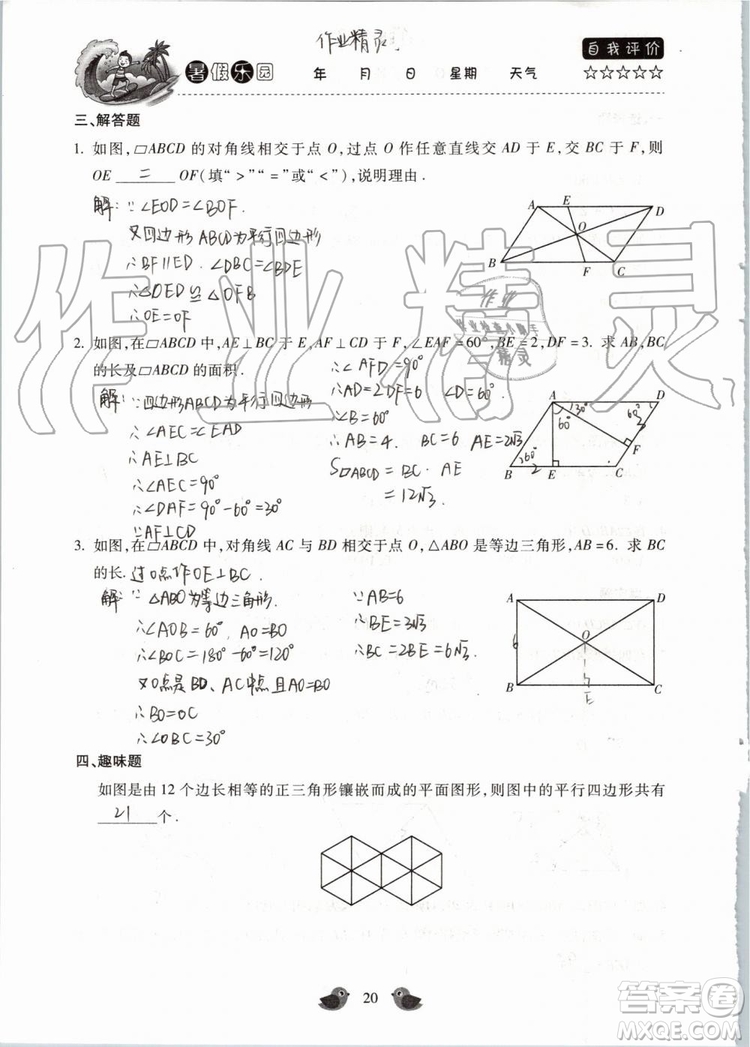 作业精灵.
自我评价
暑假乐园
年 月 日 星期 天气
☆☆☆☆☆
三、解答题
1. 如图,▱ABCD 的对角线相交于点 O,过点 O 作任意直线交 AD 于 E,交 BC 于 F,则
OE = OF(填“>”“=”或“<”),说明理由.
解: ∵∠EOD=∠BOF.
又四边形ABCD为平行四边形
∴BF∥ED. ∠DBC=∠BDE
∴△OED≌△OFB
∴OE=OF
A E D
O
B F C
2. 如图,在▱ABCD 中,AE⊥BC 于 E,AF⊥CD 于 F,∠EAF=60°,BE=2,DF=3. 求 AB,BC
的长及▱ABCD 的面积.
解: ∵四边形ABCD为平行四边形
∴∠AEC=∠EAD
∴AE⊥BC
∴∠AEC=90°
∴∠DAF=90°-60°=30°
∵AF⊥CD
∴∠AFD=90°
∴AD=2DF=6 ∠D=60°
∴∠B=60°
∴AB=4. BC=6 AE=2√3
S▱ABCD=BC·AE
=12√3
A D
130° 60°
60° 3
F
60°
B 2 E C
3. 如图,在▱ABCD 中,对角线 AC 与 BD 相交于点 O,△ABO 是等边三角形,AB=6. 求 BC
的长. 过O点作OE⊥BC.
解: ∵△ABO为等边三角形.
∴∠AOB=60°, AO=BO
∴∠BOC=180°-60°=120°
又O点是BD、AC中点且AO=BO
∴BO=OC
∴∠OBC=30°
∵AB=6
∴BE=3√3
∴BC=2BE=6√3
A D
6 O
B E C
四、趣味题
如图是由 12 个边长相等的正三角形镶嵌而成的平面图形,则图中的平行四边形共有
21 个.
20
作业精灵
作业检查小帮手
精灵
答案圈
MXQE.COM